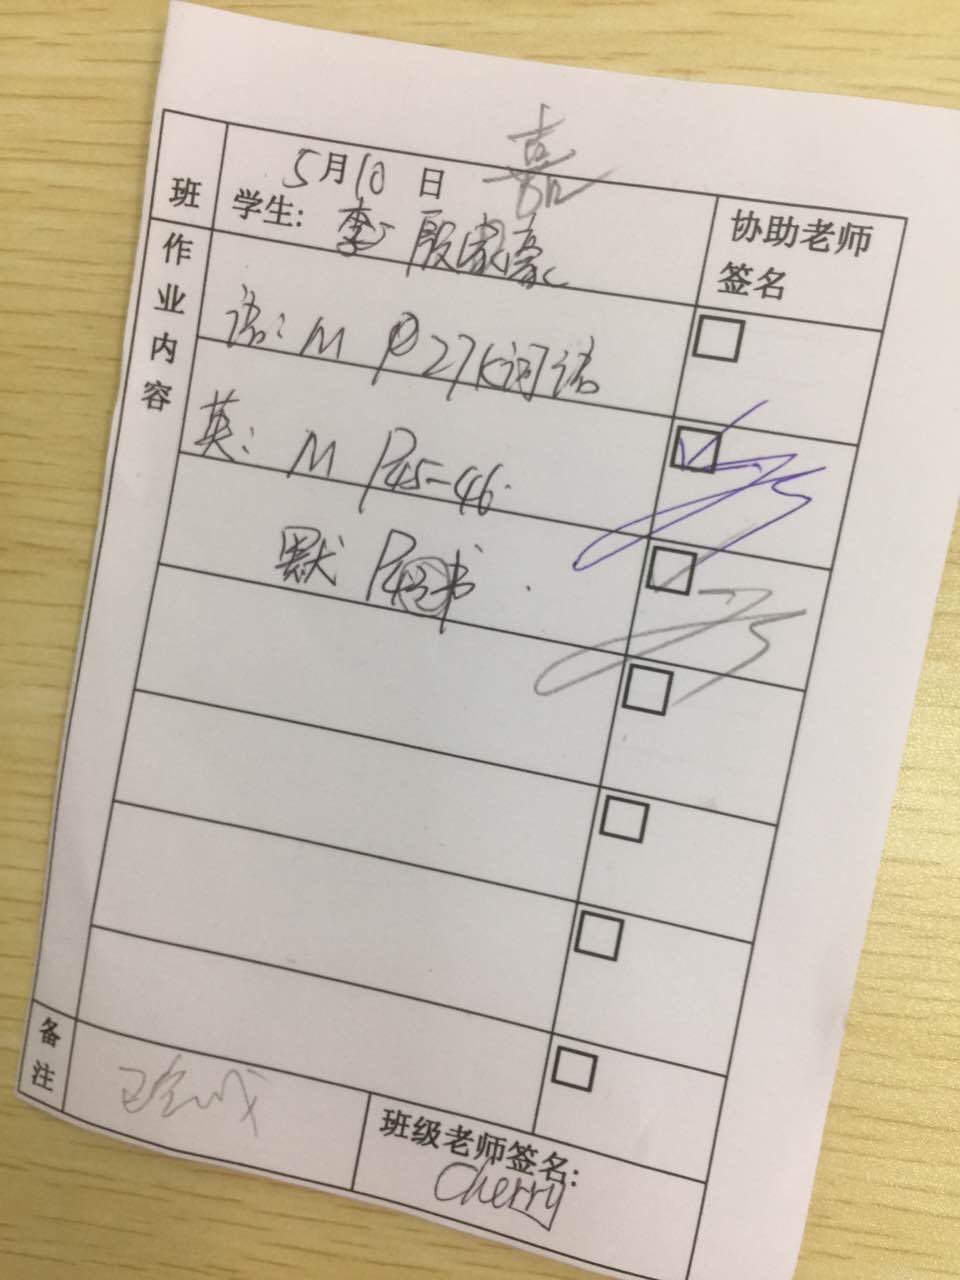 嘉
5月10日
班
学生: 殷家豪
协助老师
签名
作业内容
语: M P27K词语
英: M P45-46.
默 P 书
备注
已完成
班级老师签名:
Cherry